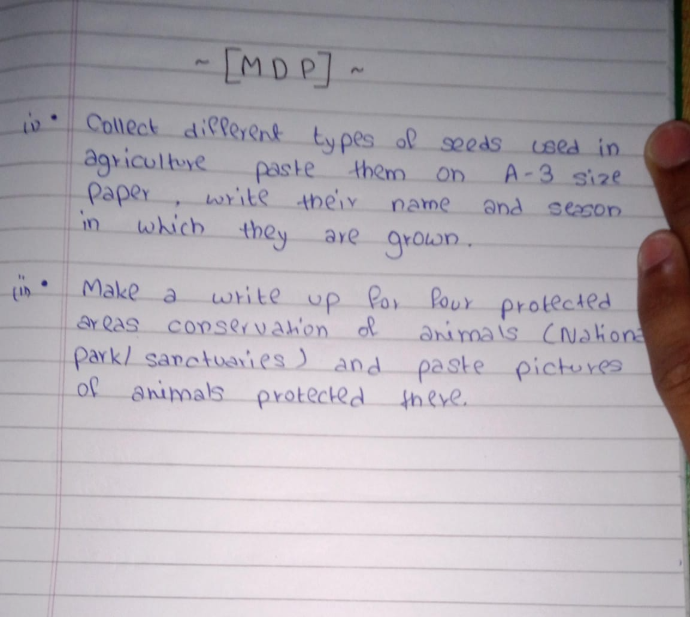 ~ [MDP] ~
i) • Collect different types of seeds used in
agriculture paste them on A-3 size
paper, write their name and season
in which they are grown.
(ii) • Make a write up for four protected
areas conservation of animals (Nationa
park/ sanctuaries) and paste pictures
of animals protected there.